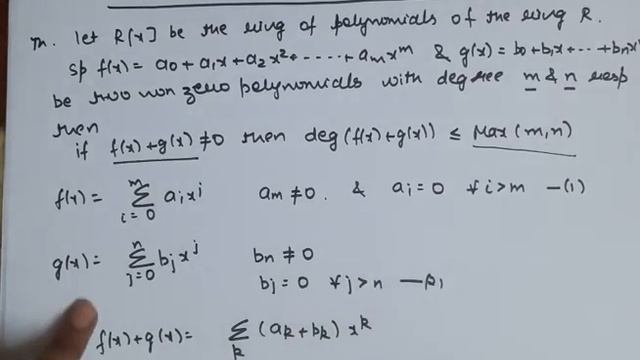 Th. let R[x] be the ring of polynomials of the ring R.
Sp f(x) = a₀ + a₁x + a₂x² + ----- + aₘxᵐ & g(x) = b₀ + b₁x + -- + bₙxⁿ
be two non zero polynomials with degree m & n resp
then
if f(x) + g(x) ≠ 0 then deg(f(x) + g(x)) ≤ Max(m, n)
f(x) = Σ_{i=0}^{m} aᵢxʲ aₘ ≠ 0. & aᵢ = 0 ∀ i > m —(1)
g(x) = Σ_{j=0}^{n} bⱼxʲ bₙ ≠ 0
bⱼ = 0 ∀ j > n —
f(x) + g(x) = Σ_k (aₖ + bₖ) xᵏ